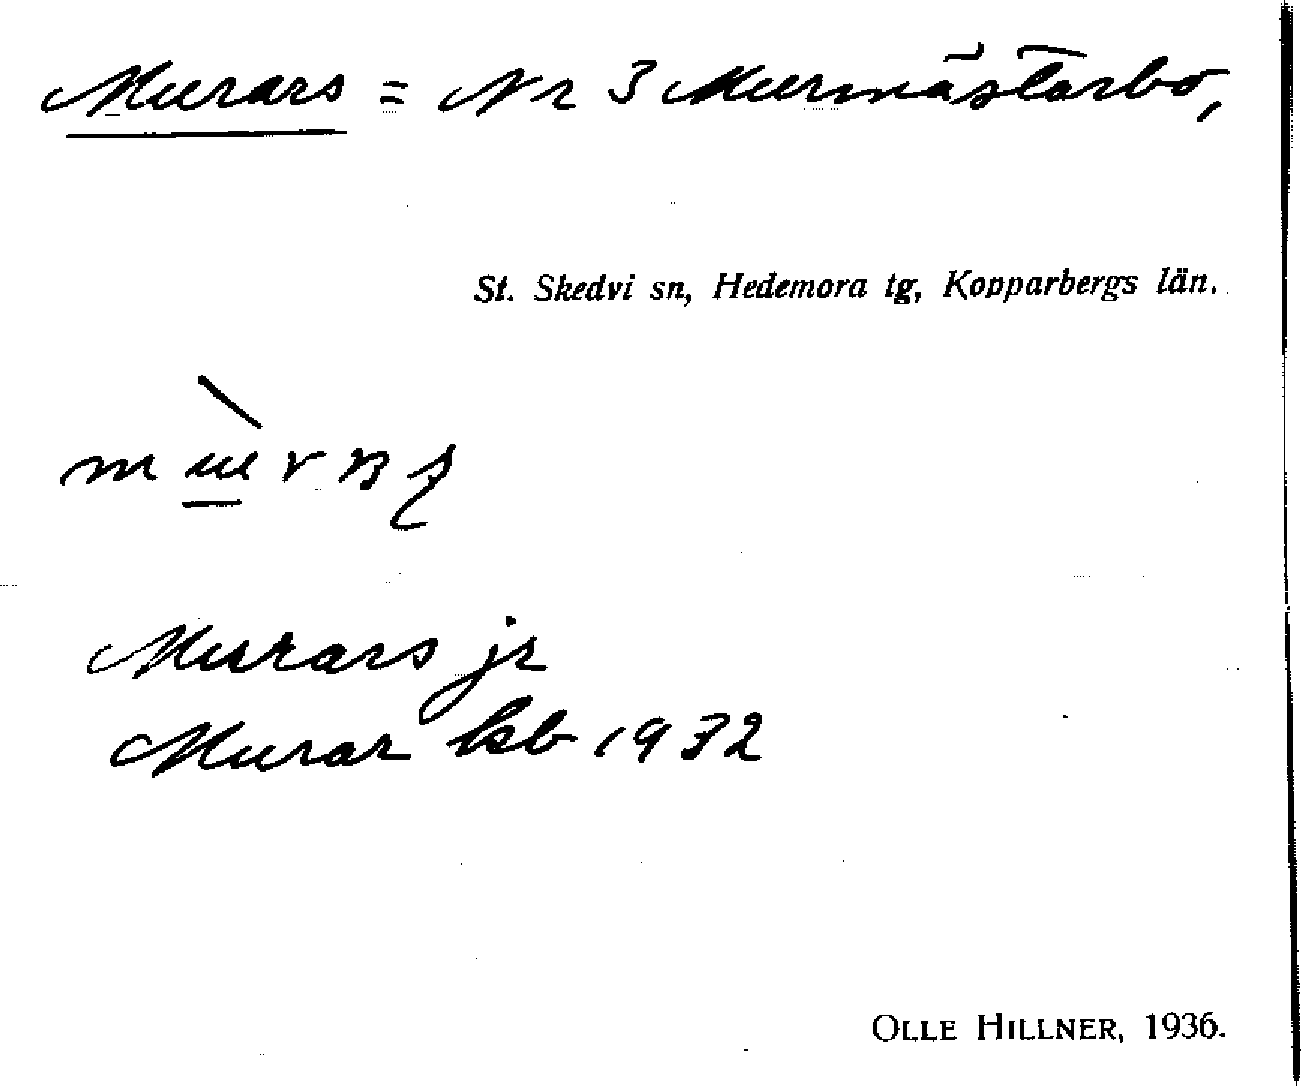 Murars = Nr 3 Murmästarbo,
St. Skedvi sn, Hedemora tg, Kopparbergs län.
Murars jr
Murar ksb 1932
OLLE HILLNER, 1936.